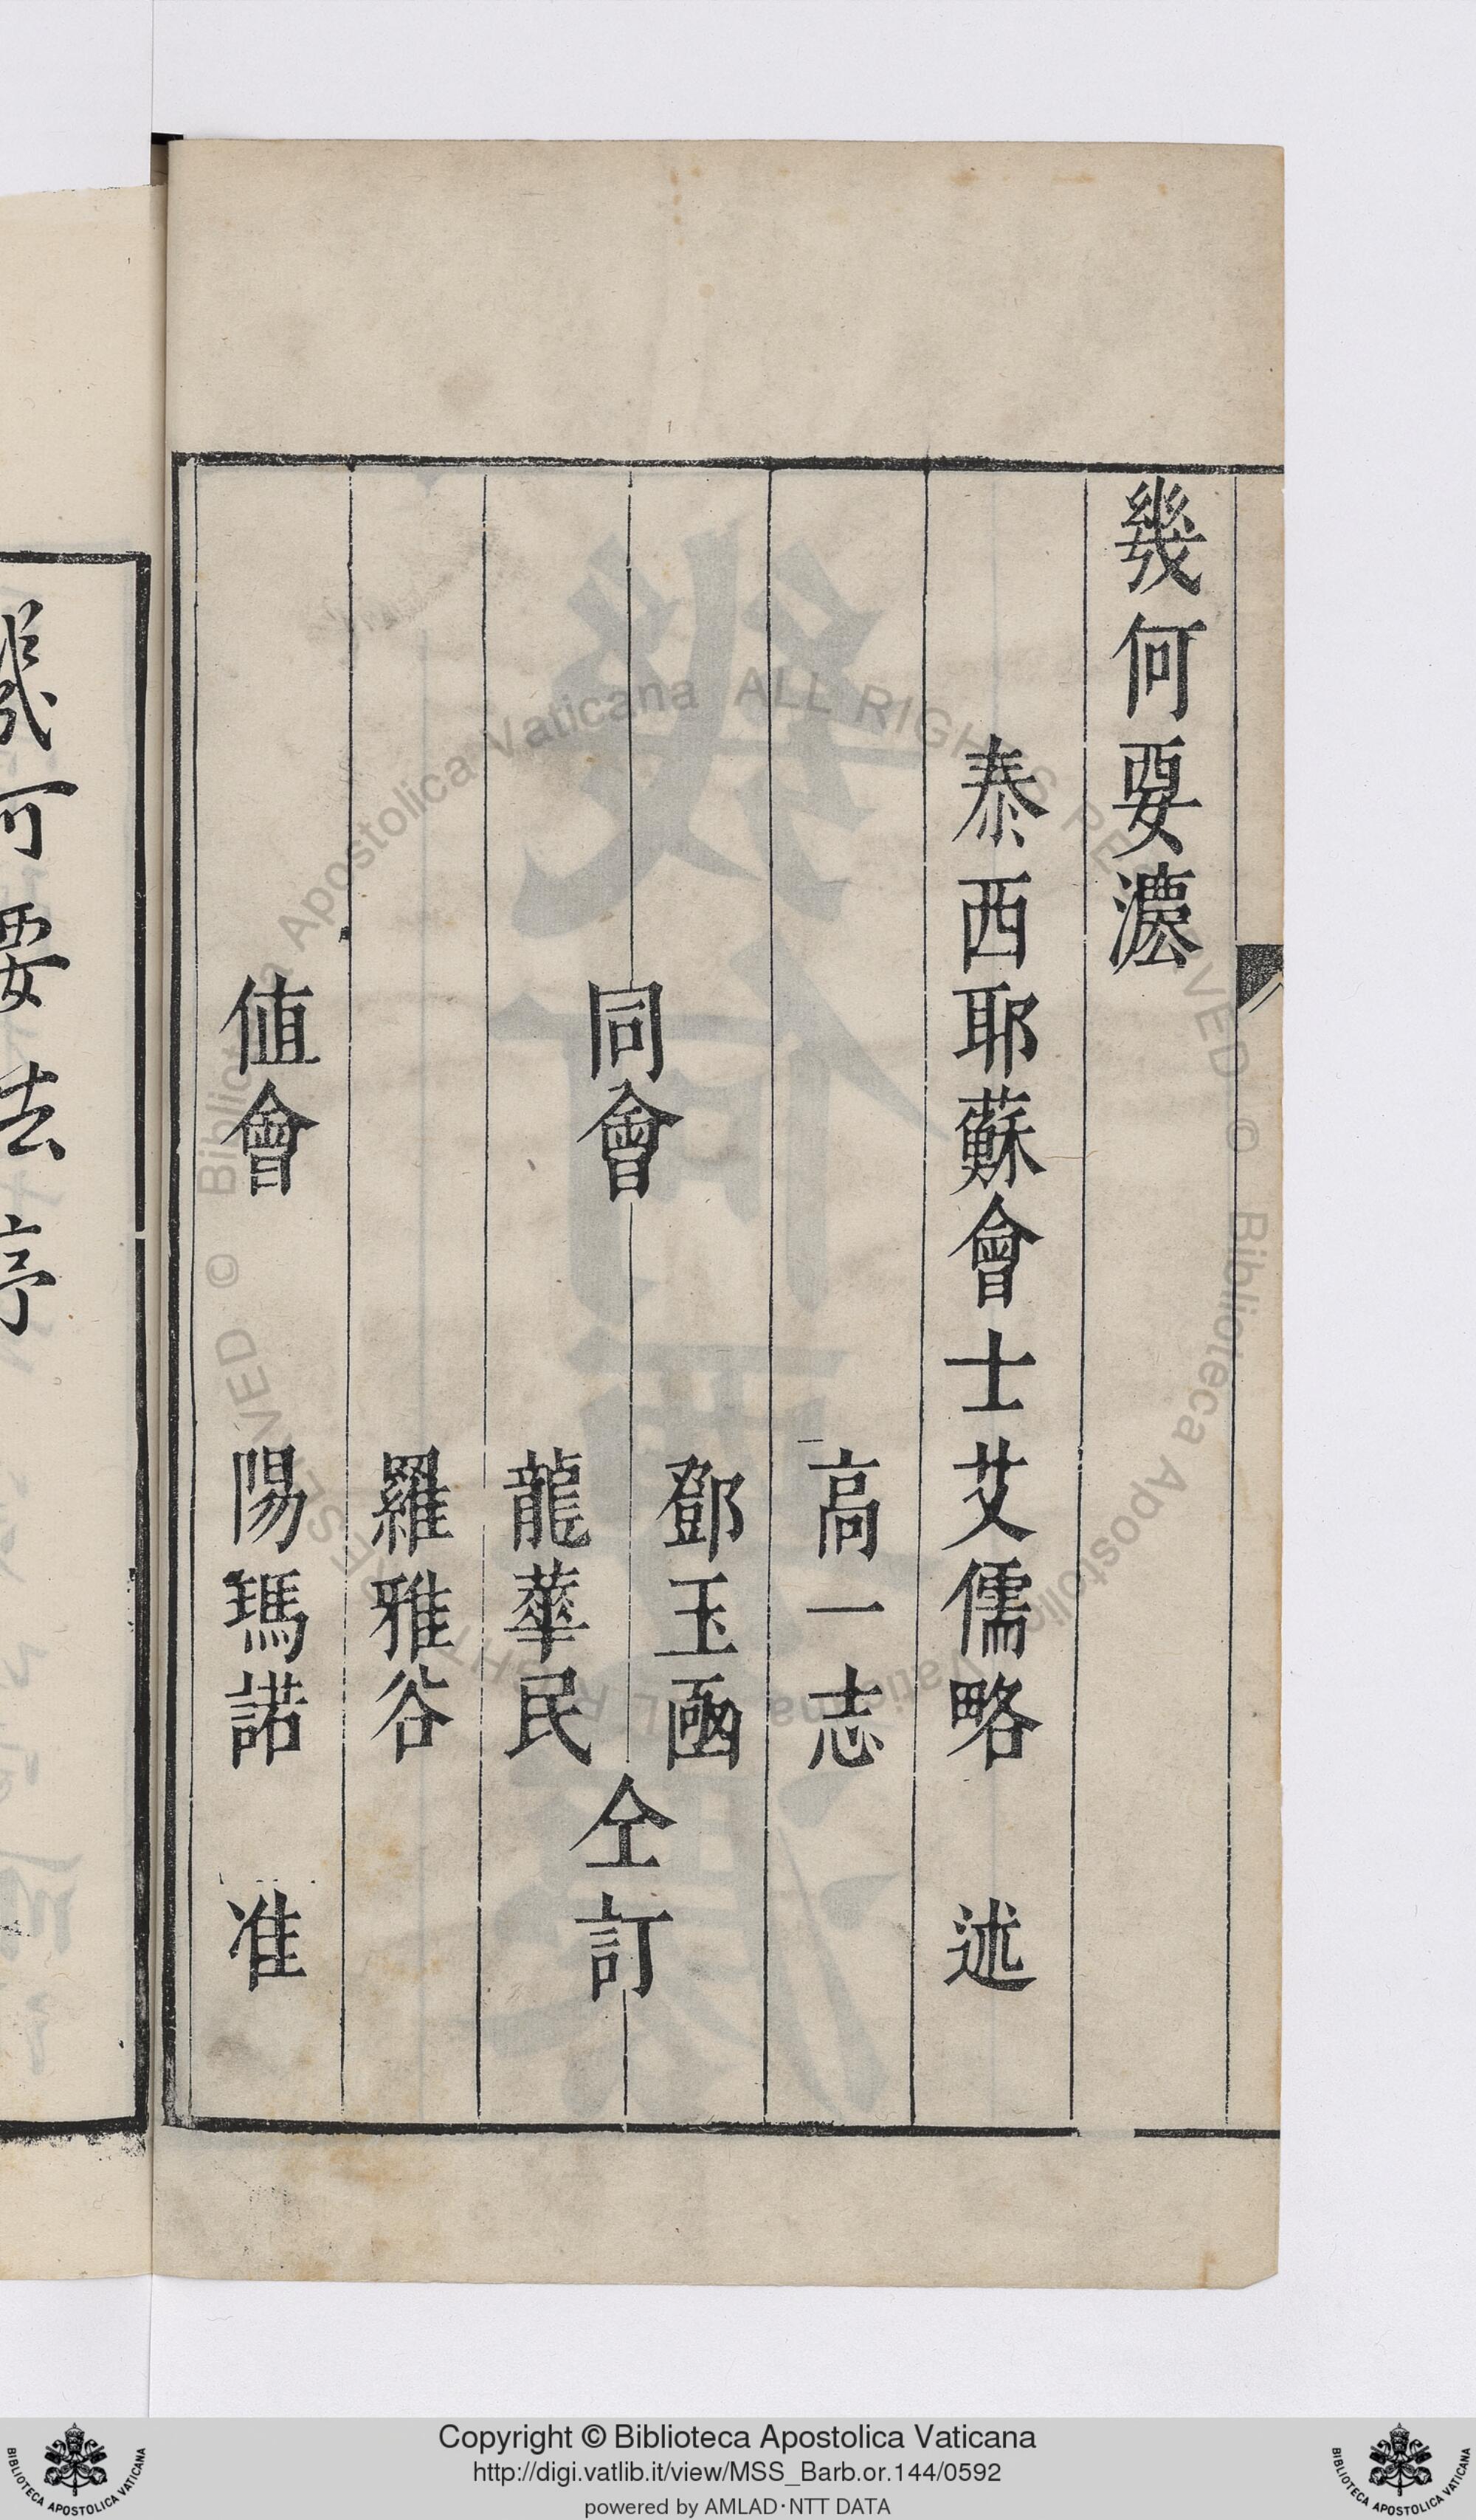 幾何要灋
泰西耶蘇會士艾儒略 述
高一志
同會 鄧玉函 仝訂
龍華民
羅雅谷
值會 陽瑪諾 准
幾何要法序
Copyright © Biblioteca Apostolica Vaticana
http://digi.vatlib.it/view/MSS_Barb.or.144/0592
powered by AMLAD·NTT DATA
BIBLIOTECA APOSTOLICA VATICANA
BIBLIOTECA APOSTOLICA VATICANA
© Biblioteca Apostolica Vaticana ALL RIGHTS RESERVED © Biblioteca Apostolica Vaticana ALL RIGHTS RESERVED